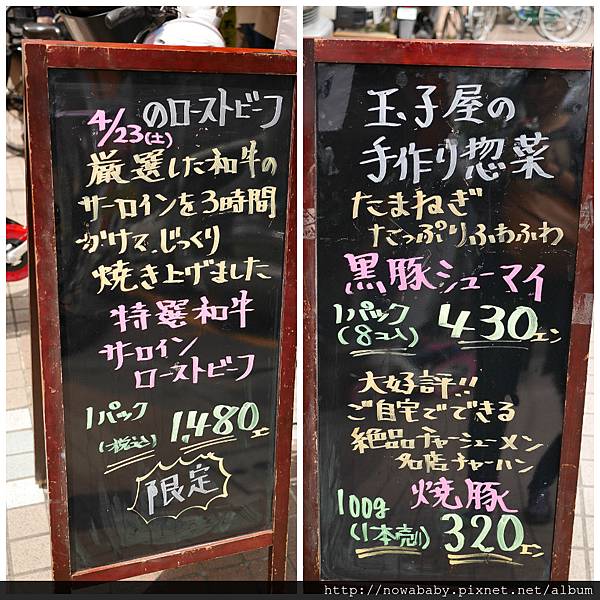 4/23(土)のローストビーフ
厳選した和牛の
サーロインを3時間
かけてじっくり
焼き上げました
特選和牛
サーロイン
ローストビーフ
1パック
(税込) 1,480エン
限定
玉子屋の
手作り惣菜
たまねぎ
たっぷりふわふわ
黒豚シューマイ
1パック
(8コ入) 430エン
大好評!!
ご自宅でできる
絶品チャーシューメン
名店チャーハン
焼豚
100g
(1本売) 320エン
http://nowababy.pixnet.net/album